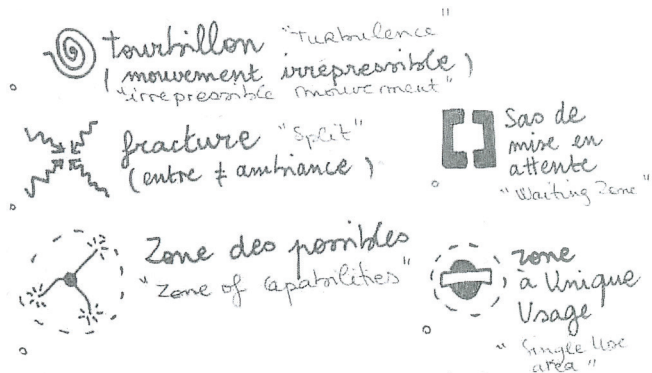 tourbillon "Turbulence"
(mouvement irrépressible)
"irrepressible mouvement"
fracture "Split"
(entre ≠ ambiance)
Sas de
mise en
attente
"Waiting Zone"
Zone des possibles
"Zone of capabilities"
zone
à Unique
Usage
"Single Use
area"